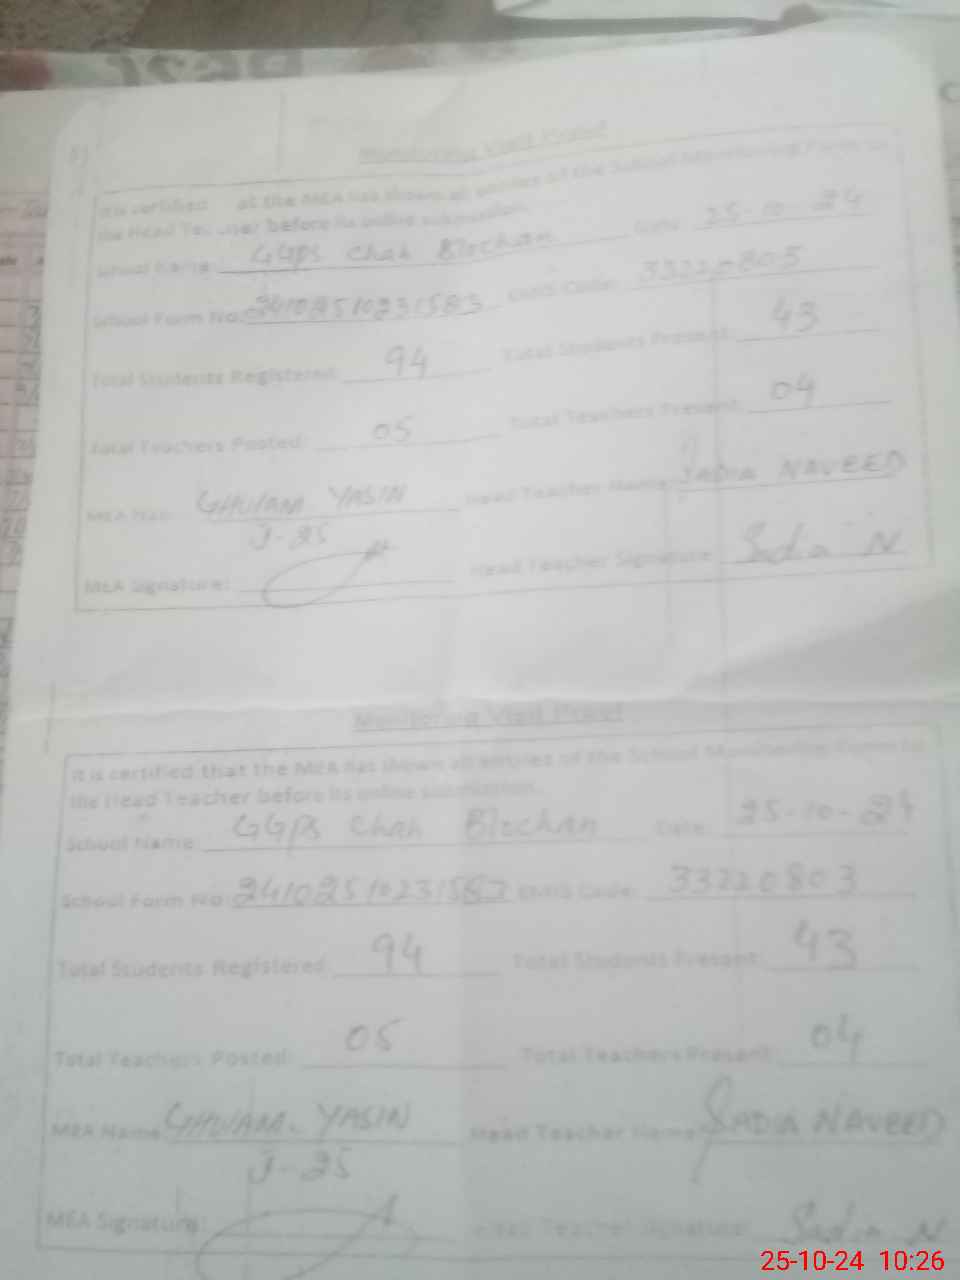 Monitoring Visit Proof
It is certified at the MEA has shown all entries of the School Monitoring Form to
the Head before its online submission.
School Name: GGPS Chah Blochan Date: 25-10-24
School Form No: 24102510231583 EMIS Code: 33220805
Total Students Registered: 94 Total Students Present: 43
Total Teachers Posted: 05 Total Teachers Present: 04
MEA GHULAM YASIN Head Teacher Name: SADIA NAVEED
J-25
MEA Signature: Head Teacher Signature: Sadia N
Monitoring Visit Proof
It is certified that the MEA has shown all entries of the School Monitoring Form to
the Head Teacher before its online submission.
School Name: GGPS Chah Blochan Date: 25-10-24
School Form No: EMIS Code: 33220803
Total Students Registered: 94 Total Students Present: 43
Total Teachers Posted: 05 Total Teachers Present: 04
MEA Name: GHULAM YASIN Head Teacher Name: SADIA NAVEED
J-25
MEA Signature: Head Teacher Signature: Sadia N
25-10-24 10:26